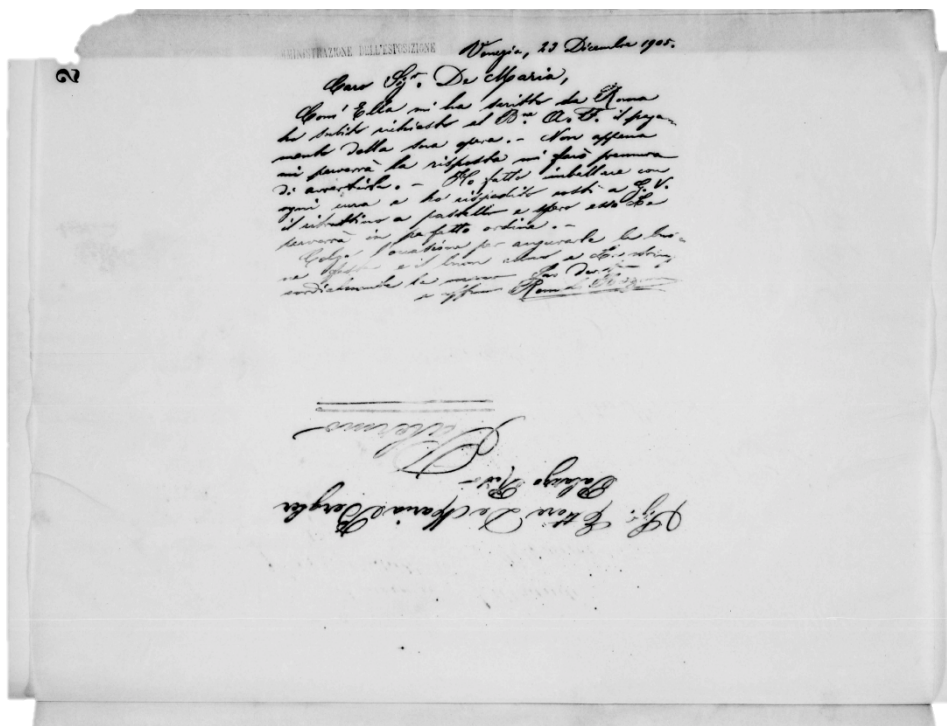 AMMINISTRAZIONE DELL'ESPOSIZIONE
Venezia, 23 Dicembre 1905.
2
Caro Sigr. De Maria,
Com' Ella mi ha scritto da Roma
ho subito richiesto al Bne A. F. il paga-
mento della sua opera. - Non appena
mi perverrà la risposta mi farò premura
di avvertirla. - Ho fatto imballare con
ogni cura e ho rispedito costì a G. V.
il ritrattino a pastello e spero esso Le
perverrà in perfetto ordine. -
Colgo l'occasione per augurarle le buo-
ne feste e il buon anno e
cordialmente la mano
Sigr. Ettore De Maria Bergler
Palazzo
Palermo